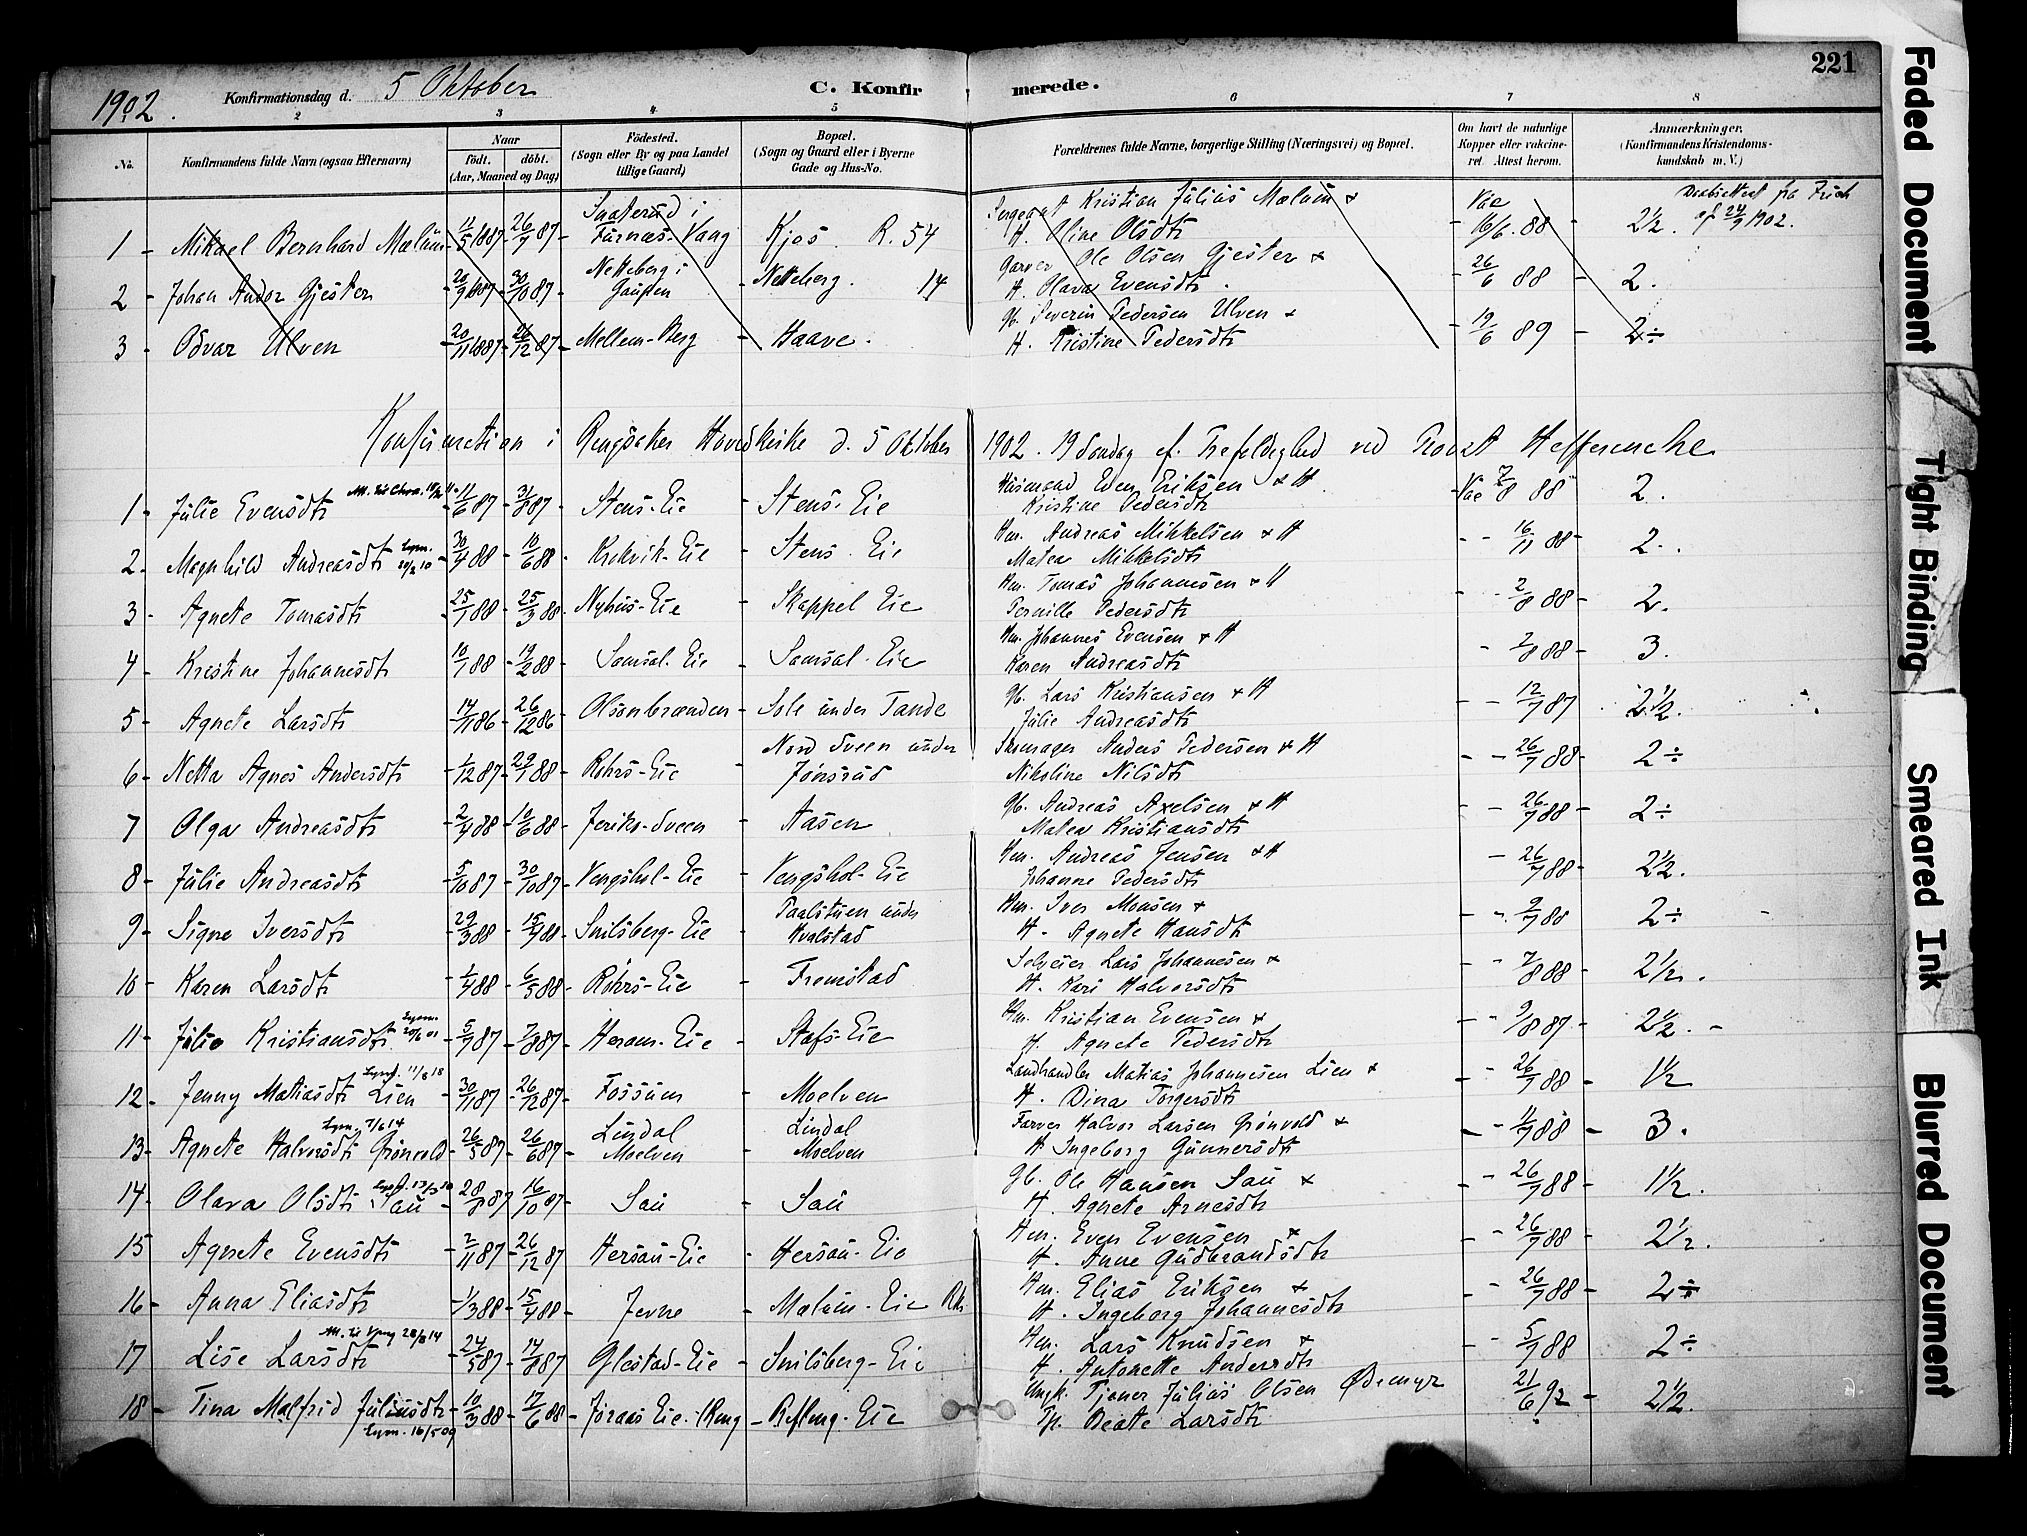 221
1902. Konfirmationsdag d. 5 Oktober C. Konfirmerede.
2 3 4 5 6 7 8
No. Konfirmandens fulde Navn (ogsaa Efternavn) Naar født. døbt. (Aar, Maaned og Dag) Fødested. (Sogn eller By og paa Landet tillige Gaard) Bopæl. (Sogn og Gaard eller i Byerne Gade og Hus-No. Forældrenes fulde Navne, borgerlige Stilling (Næringsvei) og Bopæl. Om havt de naturlige Kopper eller vaccineret. Attest herom. Anmærkninger. (Konfirmandens Kristendomskundskab m. V.)
1 - Mikael Bernhard Mælum 11/5 1887 26/7 87 Snaterud i Furnæs - Vang Kjos. R. 54 Sergeant Kristian Julius Mælum + H. Oline Olsdtr Vac 16/6. 88 - 2½. fra 24/9 1902.
2 - Johan Andor Gjester 20/9 1887 30/10 87 Netteberg i Gaupen - Netteberg. 14 Garver Ole Olsen Gjester + H. Olava Evensdtr. - 26/6 88 - 2.
3 - Odvar Ulven - 20/11 1887 26/12 87 - Mellum-Berg - Haave. Gb. Severin Pedersen Ulven + H. Kristine Pedersdtr - 19/6 89 - 2÷
Konfirmation i Ringsaker Hovedkirke d. 5 Oktober 1902. 19 Søndag ef. Trefoldighed ved Provst
1 - Julie Evensdtr - 11/6 87 - 31/7 87 - Stens-Eie - Stens-Eie Husmand Even Eriksen + H Kristine Pedersdtr - Vac 7/8 88 - 2.
2 - Magnhild Andreasdtr 30/4 88 - 10/6 88. Krekvik-Eie - Stens-Eie Hm. Andreas Mikkelsen + H Matea Mikkelsdtr - - 16/11 88 - 2.
3 - Agnete Tomasdtr 25/1 88 - 25/3 88 Nyhus-Eie - Skappel Eie Hm. Tomas Johannesen + H Pernille Pedersdtr - - 2/8 88 - 2.
4 - Kristine Johannesdtr 10/1 88 - 19/2 88 - Samsal-Eie - Samsal-Eie Hm. Johannes Evensen + H Karen Andreasdtr - 2/8 88 - 3.
5 - Agnete Larsdtr - 14/11 86 - 26/12 86 Olsonbrænden - Sole under Tande Gb. Lars Kristiansen + H Julie Andreasdtr - - 12/7 87 2½.
6 - Netta Agnes Andersdtr - 1/12 87 - 29/1 88 - Rohrs-Eie - Nord Sveen under Jønsrud Skomager Anders Pedersen + H Nikoline Nilsdtr - - 26/7 88 - 2÷
7 Olga Andreasdtr - 2/4 88 - 10/6 88 - Jeriko-Sveen - Aasen Gb. Andreas Axelsen + H Matea Kristiansdtr - - 26/7 88 - 2÷
8 - Julie Andreasdtr - 5/10 87 - 30/10 87 - Vengshol-Eie - Vengshol-Eie Hm. Andreas Jensen + H Johanne Pedersdtr - 26/7 88 - 2½.
9 - Signe Iversdtr - 29/3 88 - 15/4 88 - Snilsberg-Eie - Paalstuen under Kvalstad Hm. Iver Monsen + H. Agnete Hansdtr - - 9/7 88 2÷ -
10 - Karen Larsdtr - 1/4 88 - 6/5 88 - Rohrs-Eie - Fremstad Selveier Lars Johannesen + H. Kari Halvorsdtr - - 7/8 88 - 2½.
11 - Julie Kristiansdtr - 5/7 87 - 7/8 87 - Heram-Eie - Stafs-Eie Hm. Kristian Evensen + H. Agnete Pedersdtr - - 9/8 87 - 2½. -
12 - Jenny Matiasdtr Lien 30/11 87 - 26/12 87 - Fossum - Moelven Landhandler Matias Johannesen Lien + H. Dina Torgersdtr - - 26/7 88 - 1½
13 - Agnete Halvorsdtr Grønvold - 26/5 87 - 26/6 87 - Lindal Moelven - Lindal Moelven Farver Halvor Larsen Grønvold + H Ingeborg Gunnersdtr - - 11/7 88 - 3.
14 - Olava Olsdtr Sau 28/8 87 16/10 87 - Sau - Sau Gb. Ole Hansen Sau + H. Agnete Arnesdtr - - 26/7 88 - 1½.
15 Agnete Evensdtr - 2/11 87 - 26/12 87 Hersau-Eie - Hersau-Eie Hm. Even Evensen + H. Anne Gudbrandsdtr - - 26/7 88 - 2½.
16 - Anna Eliasdtr - 1/3 88 - 15/4 88 - Jevne - Mælum-Eie Hm. Elias Eriksen + H. Ingeborg Johannesdtr - - 26/7 88 - 2÷
17 Lise Larsdtr - 24/5 87 - 14/8 87 - Glestad-Eie - Snilsberg-Eie Hm. Lars Knudsen + H. Antonette Andersdtr - - 5/7 88 - 2÷
18 - Tina Malfrid Juliusdtr - 10/3 88 - 17/6 88 - Joraas Eie i Ring. - Refling-Eie Ungk. Tjener Julius Olsen Ødemyr Pg. Beate Larsdtr 21/6 92 - 2½.
Faded Document
Tight Binding
Smeared Ink
Blurred Document